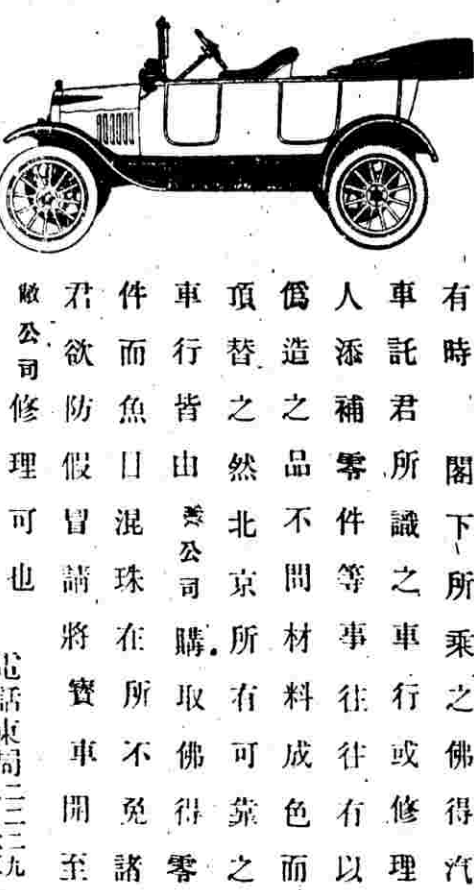 有時 閣下所乘之佛得汽
車託君所識之車行或修理
人添補零件等事往往有以
僞造之品不問材料成色而
頂替之然北京所有可靠之
車行皆由敝公司購取佛得零
件而魚目混珠在所不免諸
君欲防假冒請將寶車開至
敝公司修理可也
電話東局